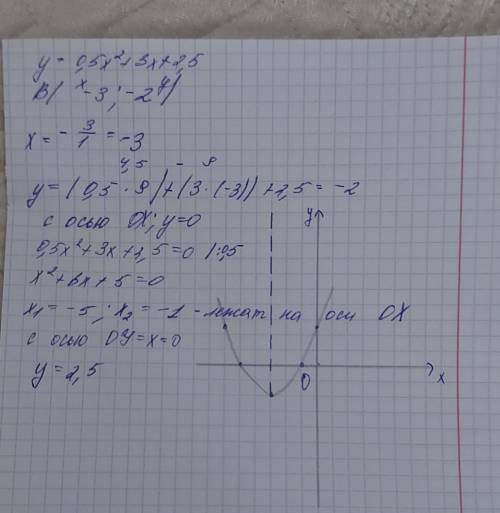 y = 0,5x²+3x+2,5
B( x -3 ; -2 y )
x = - 3/1 = -3
4,5 - 9
y = ( 0,5 · 9 ) + (3 · (-3)) + 2,5 = -2
с осью OX; y=0
y
0,5x²+3x+2,5=0 /:0,5
x²+6x+5=0
x₁ = -5 ; x₂ = -1 - лежат на оси OX
с осью OY = x=0
y = 2,5
O
x